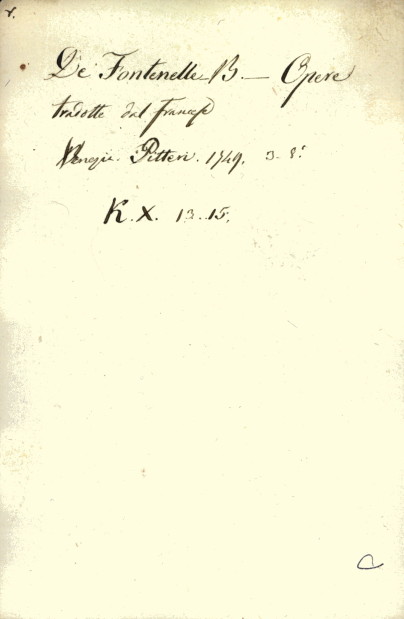 r.
De Fontenelle B. — Opere
tradotte dal francese
Venezia. Pitteri. 1749. 3. 8.º
K. X. 13. 15.
C